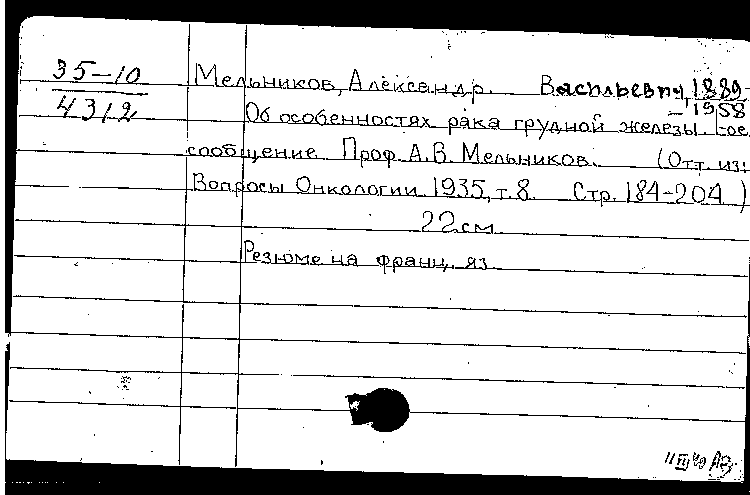 35-10
4312
Мельников, Александр Васильевич, 1889-
-1958
Об особенностях рака грудной железы. I-ое
сообщение. Проф. А.В. Мельников. (Отт. из:
Вопросы Онкологии 1935, т. 8. Стр. 184-204)
22 см.
Резюме на франц. яз.